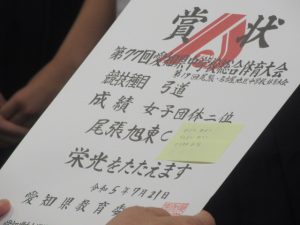 賞状
第77回愛知県中学校総合体育大会
競技種目 弓道
成績 女子団体二位
尾張旭東C
栄光をたたえます
令和5年7月21日
愛知県教育委